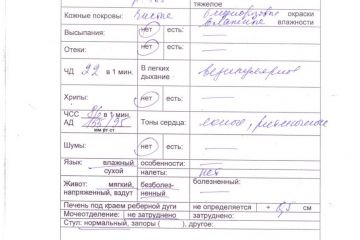 тяжелое
Кожные покровы: Чистые бледно-розовые окраски влажности
Высыпания: нет есть:
Отеки: нет есть:
ЧД 22 в 1 мин. В легких дыхание: везикулярное
Хрипы: нет есть:
ЧСС в 1 мин.
АД мм рт ст Тоны сердца: ясные, ритмичные
Шумы: нет есть:
Язык: влажный, сухой особенности: налеты: нет
Живот: мягкий, напряженный, вздут безболезненный болезненный:
Печень под краем реберной дуги не определяется + см
Мочеотделение: не затруднено затруднено:
Стул: нормальный, запоры ( ), другое: